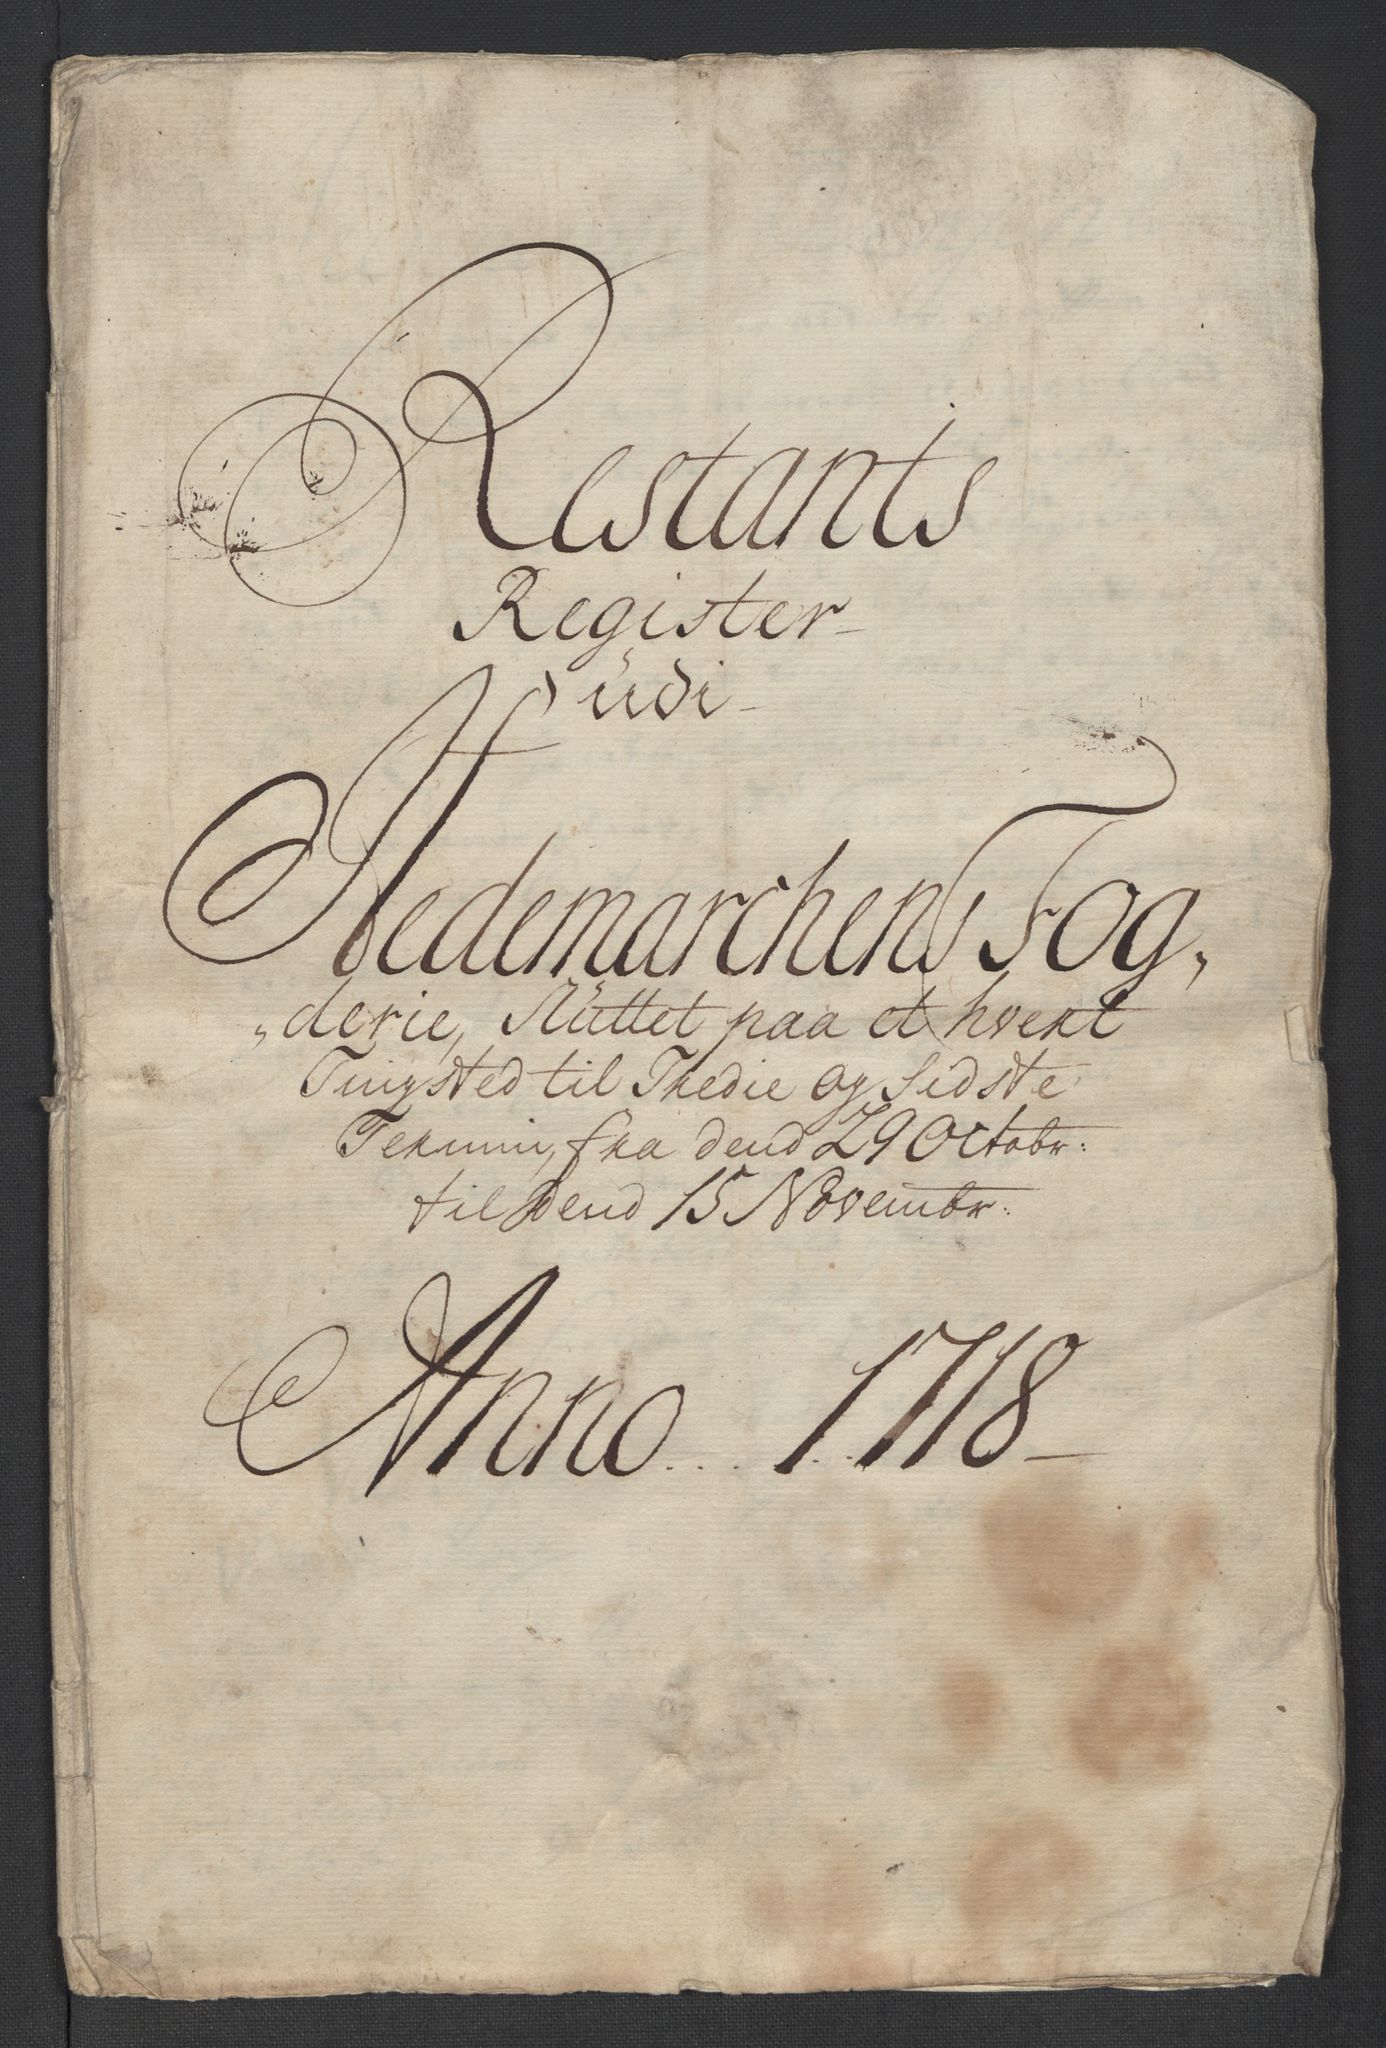 Restants
Register
üdi
Hedemarchens Fog„
„derie, Slüttet paa et hvert
Tingsted til Tredie og Sidste
Termin, fra dend 29 Octobr:
til dend 15 Novembr:
Anno 1718